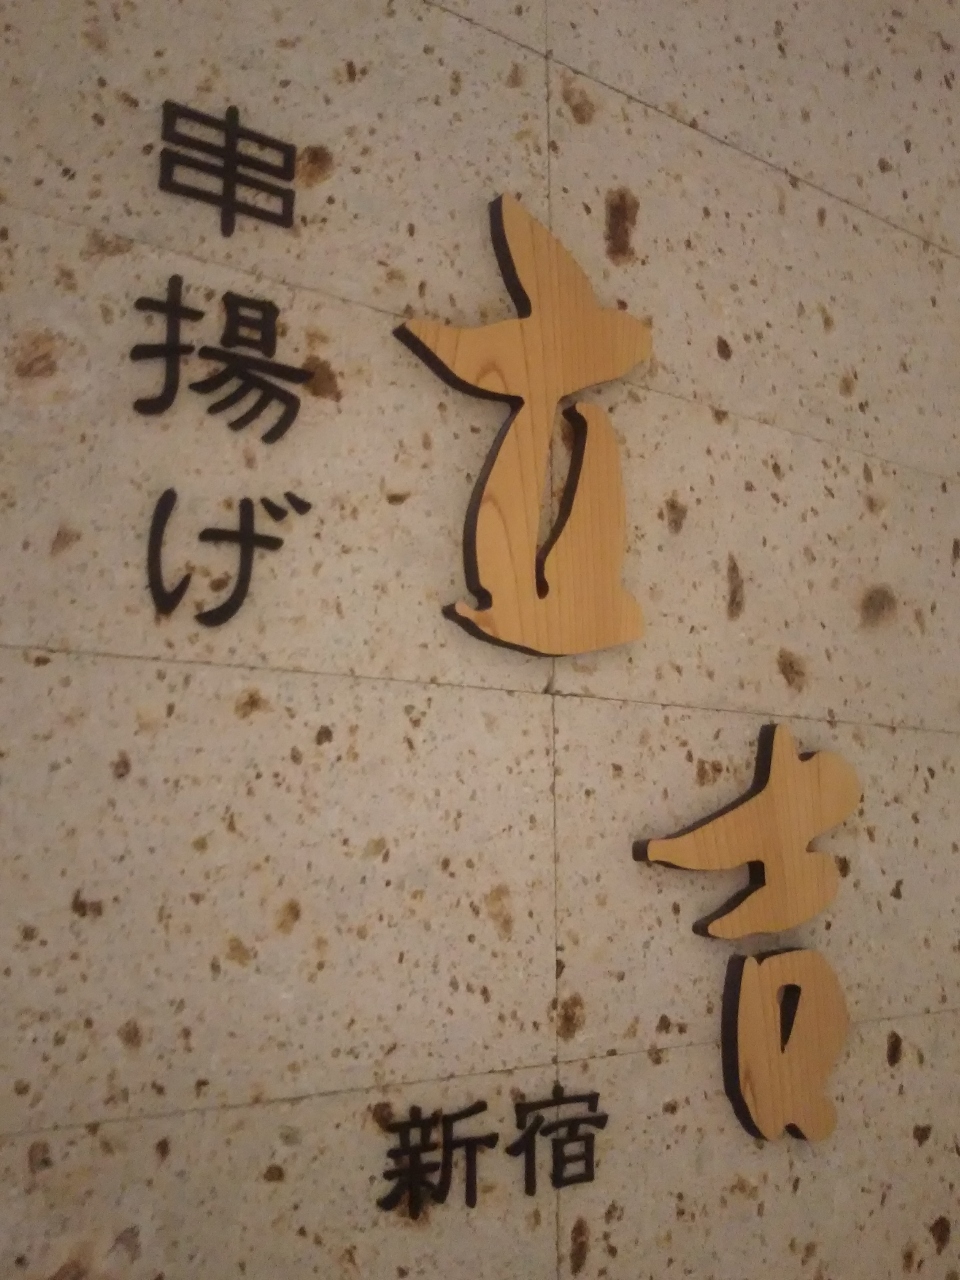 串揚げ
立吉
新宿